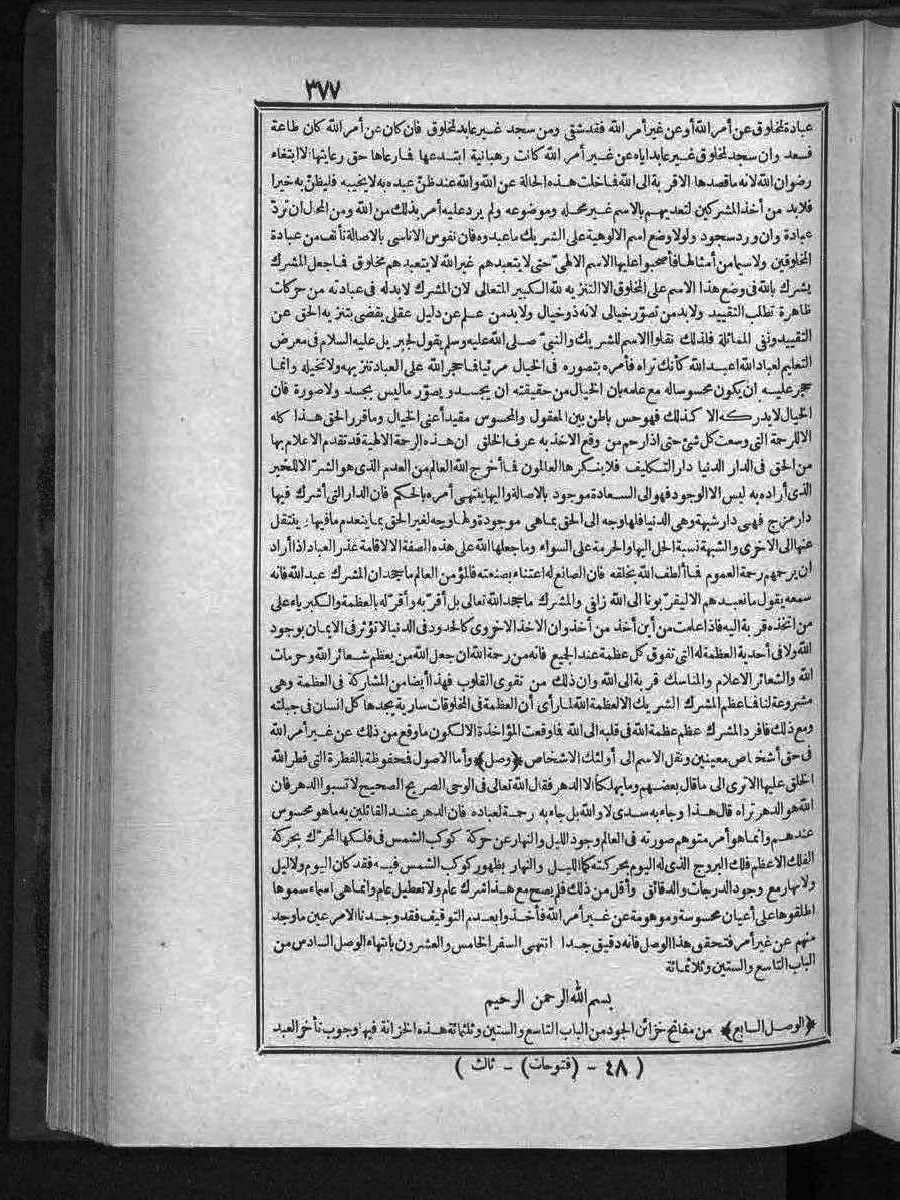 ٣٧٧
عبادة لمخلوق عن أمر الله أو عن غير أمر الله فقد شقى ومن سجد غير عابد لمخلوق فان كان عن أمر الله كان طاعة
فسعد وان سجد لمخلوق غير عابد اياه عن غير أمر الله كانت رهبانية ابتدعها فما رعاها حق رعايتها الا ابتغاء
رضوان الله لانه ما قصدها الا قربة الى الله فما خلت هذه الحالة عن الله والله عند ظنّ عبده به لا يخيبه فليظنّ به خيرا
فلا بد من أخذ المشركين لتعديهم بالاسم غير محله وموضوعه ولم يرد عليه أمر بذلك من الله ومن المحال ان تردّ
عبادة وان ورد سجود ولولا وضع اسم الالوهية على الشريك ما عبدوه فان نفوس الاناسى بالاصالة تأنف من عبادة
المخلوقين ولا سيما من أمثالها فأصحبوا عليها الاسم الالهىّ حتى لا يتعبدهم غير الله لا يتعبدهم مخلوق فما جعل المشرك
يشرك بالله فى وضع هذا الاسم على المخلوق الا التنزيه لله الكبير المتعالى لان المشرك لا بد له فى عبادته من حركات
ظاهرة تطلب التقييد ولا بد من تصوّر خيالى لانه ذو خيال ولا بد من علم عن دليل عقلى يقضى بتنزيه الحق عن
التقييد ونفى المماثلة فلذلك نقلوا الاسم للشريك والنبىّ صلى الله عليه وسلم يقول لجبريل عليه السلام فى معرض
التعليم لعباد الله اعبد الله كأنك تراه فأمره بتصوره فى الخيال مرئيا فما حجر الله على العباد تنزيهه ولا تخيله وانما
حجر عليه ان يكون محسوسا له مع علمه بان الخيال من حقيقته ان يجسد ويصوّر ما ليس بجسد ولا صورة فان
الخيال لا يدركه الا كذلك فهو حس باطن بين المعقول والمحسوس مقيد أعنى الخيال وما قرر الحق هذا كله
الا للرحمة التى وسعت كل شئ حتى اذا رحم من وقع الاخذ به عرف الخلق ان هذه الرحة الالهية قد تقدم الاعلام بها
من الحق فى الدار الدنيا دار التكليف فلا ينكرها العالمون فما أخرج الله العالم من العدم الذى هو الشرّ الا للخير
الذى أراده به ليس الا الوجود فهو الى السعادة موجود بالاصالة واليها ينتهى أمره بالحكم فان الدار التى أشرك فيها
دار مزج فهى دار شبهة وهى الدنيا فلها وجه الى الحق بما هى موجودة ولها وجه لغير الحق بما ينعدم ما فيها وينتقل
عنها الى الاخرى والشبهة نسبة الحل اليها والحرمة على السواء وما جعلها الله على هذه الصفة الا لاقامة عذر العباد اذا أراد
ان يرحمهم رحمة العموم فما ألطف الله بخلقه فان الصانع له اعتناء بصنعته فالمؤمن العالم ما يجحد ان المشرك عبد الله فانه
سمعه يقول ما نعبدهم الا ليقرّبونا الى الله زلفى والمشرك ما جحد الله تعالى بل أقرّ به وأقرّ له بالعظمة والكبرياء على
من اتخذه قربة اليه فاذا علمت من أين أخذ من أخذ وان الاخذ الاخروى كالحدود فى الدنيا لا تؤثر فى الايمان بوجود
الله ولا فى أحدية العظمة له التى تفوق كل عظمة عند الجميع فانه من رحمة الله ان جعل الله من يعظم شعائر الله وحرمات
الله والشعائر الاعلام والمناسك قربة الى الله وان ذلك من تقوى القلوب فهذا أيضا من المشاركة فى العظمة وهى
مشروعة لنا فما عظم المشرك الشريك الا لعظمة الله لما رأى أن العظمة فى المخلوقات سارية يجدها كل انسان فى جبلته
ومع ذلك فما فرد المشرك عظم عظمة الله فى قلبه الى الله فما وقعت المؤاخذة الا لكون ما وقع من ذلك عن غير أمر الله
فى حق أشخاص معينين ونقل الاسم الى أولئك الاشخاص ﴿وصل﴾ وأما الاصول فمحفوظة بالفطرة التى فطر الله
الخلق عليها الا ترى الى ما قال بعضهم وما يهلكنا الا الدهر فقال الله تعالى فى الوحى الصريح الصحيح لا تسبوا الدهر فان
الله هو الدهر تراه قال هذا وجاء به سدى لا والله بل جاء به رحمة لعباده فان الدهر عند القائلين به ما هو محسوس
عندهم وانما هو أمر متوهم صورته فى العالم وجود الليل والنهار عن حركة كوكب الشمس فى فلكها المحرّك بحركة
الفلك الاعظم فلك البروج الذى له اليوم بحركته كما الليل والنهار بظهور كوكب الشمس فيه فقد كان اليوم ولا ليل
ولا نهار مع وجود الدرجات والدقائق وأقل من ذلك فلم يصح مع هذا شرك عام ولا تعطيل عام وانما هى اسماء سموها
اطلقوها على أعيان محسوسة وموهومة عن غير أمر الله فأخذوا بعدم التوقيف فقد وجدنا الامر عين ما وجد
منهم عن غير أمر فتحقق هذا الوصل فانه دقيق جدا انتهى السفر الخامس والعشرون بانتهاء الوصل السادس من
الباب التاسع والستين وثلاثمائة
بسم الله الرحمن الرحيم
﴿الوصل السابع﴾ من مفاتح خزائن الجود من الباب التاسع والستين وثلثمائة هذه الخزانة فيها وجوب تأخر العبد
( ٤٨ - (فتوحات) - ثالث )